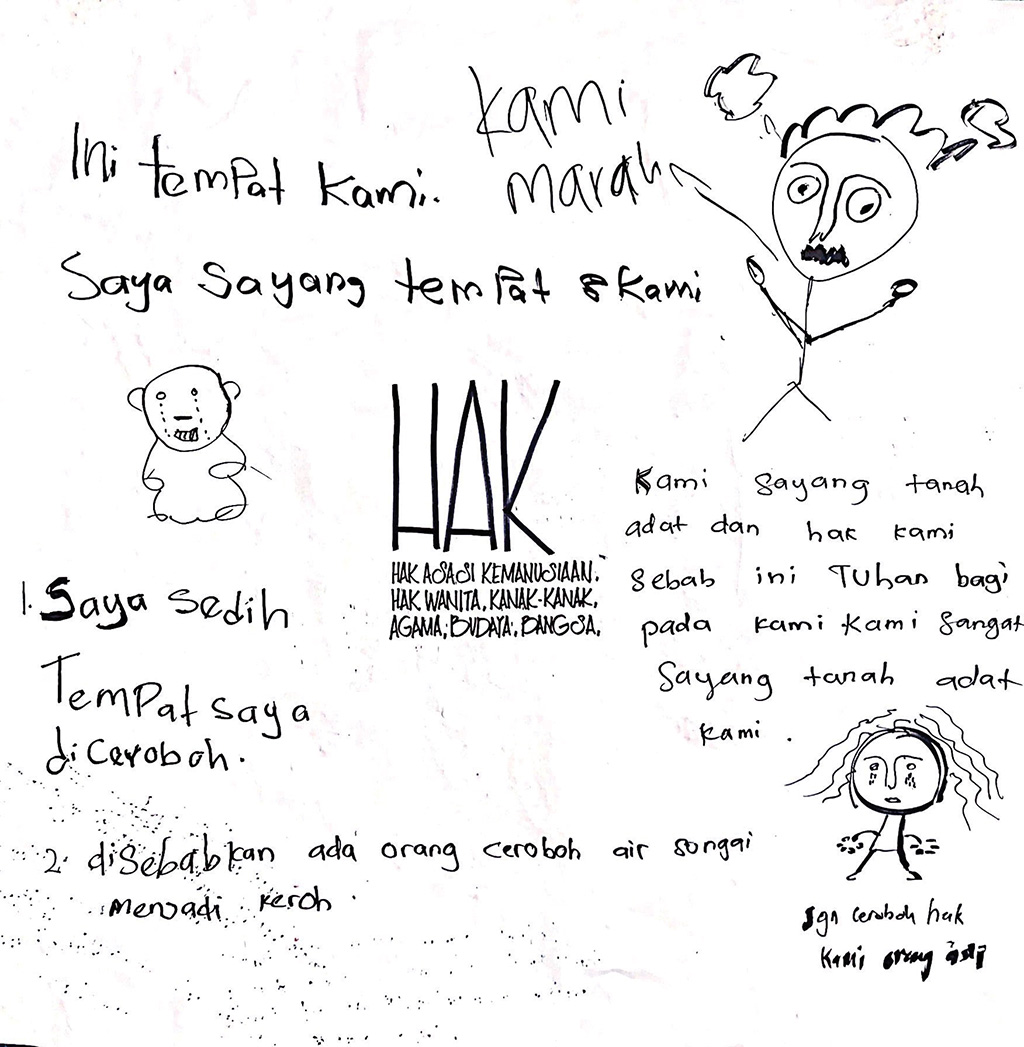 Ini tempat kami.
kami
marah
Saya sayang tempat kami
HAK
HAK ASASI KEMANUSIAAN.
HAK WANITA, KANAK-KANAK,
AGAMA, BUDAYA, BANGSA.
Kami sayang tanah
adat dan hak kami
sebab ini Tuhan bagi
pada kami kami sangat
sayang tanah adat
kami.
1. Saya sedih
Tempat saya
diceroboh.
2. disebabkan ada orang ceroboh air songai
menjadi keroh.
Jgn ceroboh hak
kami orang asli